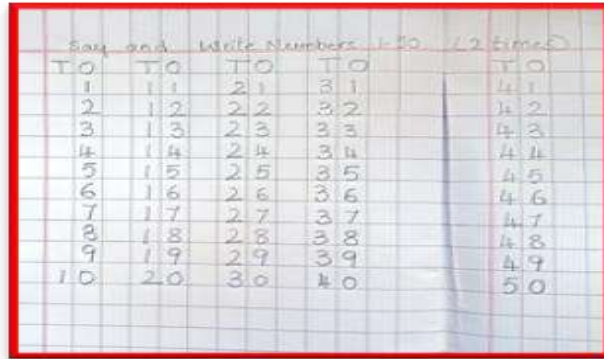 Say and Write Numbers 1-50 (2 times)
T O T O T O T O T O
1 11 21 31 41
2 12 22 32 42
3 13 23 33 43
4 14 24 34 44
5 15 25 35 45
6 16 26 36 46
7 17 27 37 47
8 18 28 38 48
9 19 29 39 49
10 20 30 40 50